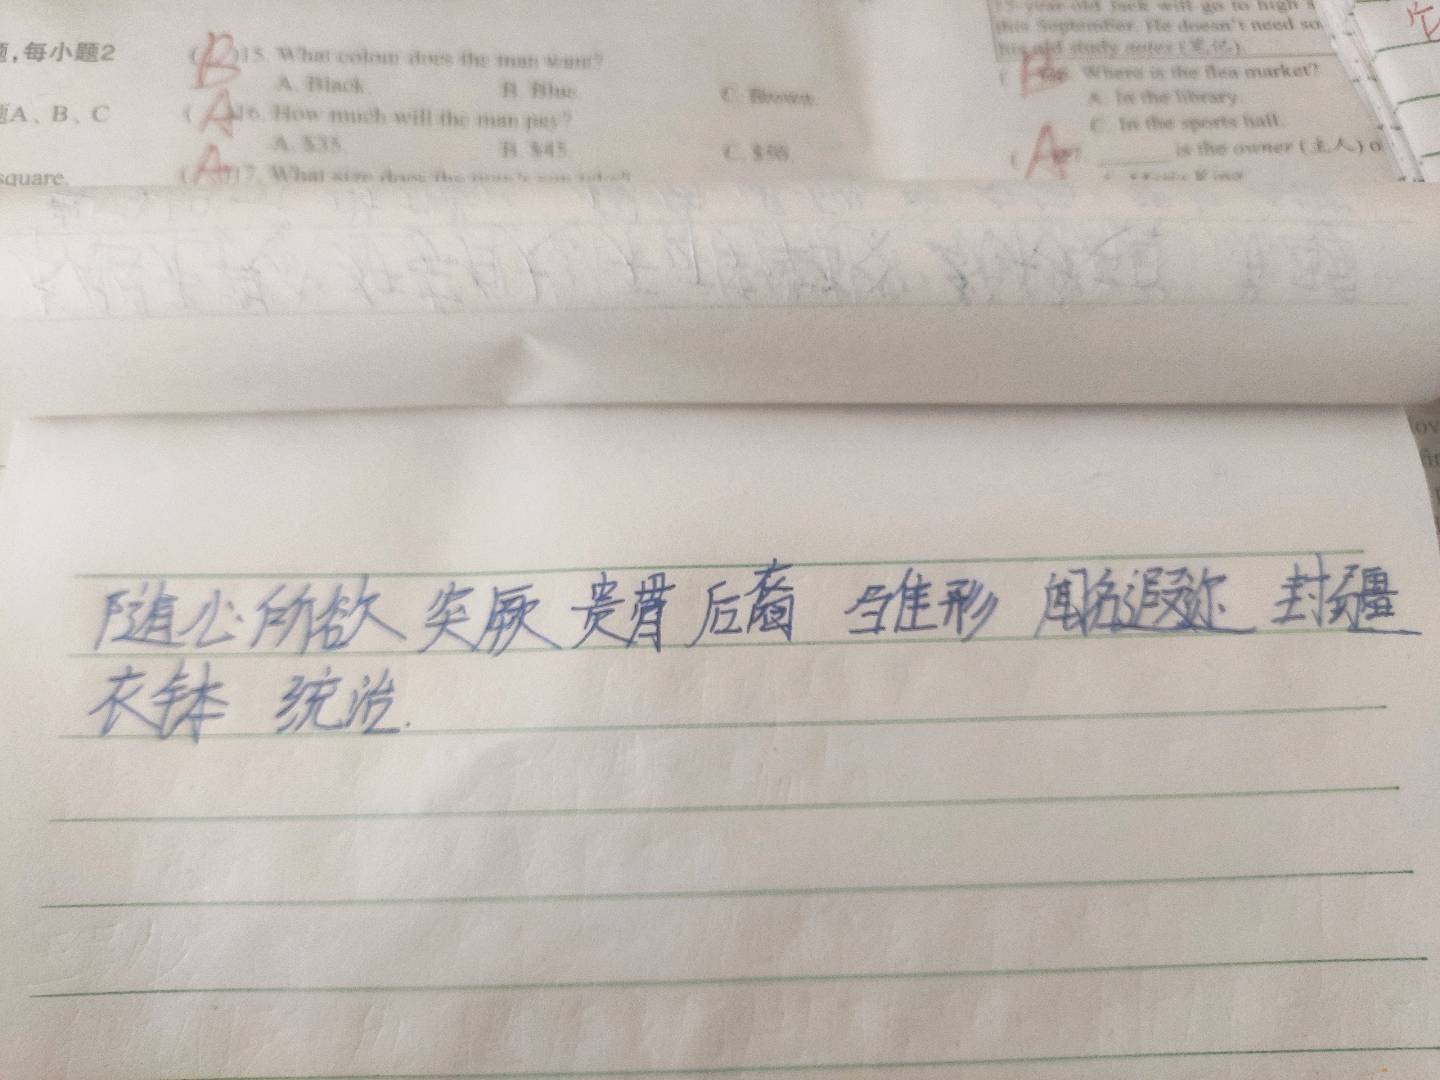 题，每小题2
( B )15. What colour does the man want?
A. Black B. Blue C. Brown
题A、B、C
( A )16. How much will the man pay?
A. $35 B. $45 C. $56
square.
( A )17. What size does the man's
15-year-old Jack will go to high s
this September. He doesn't need so
his old study notes (笔记).
( B Where is the flea market?
A. In the library.
C. In the sports hall.
( A is the owner (主人) o
随心所欲 突厥 贵胄 后裔 雏形 闻名遐迩 封疆
衣钵 统治.